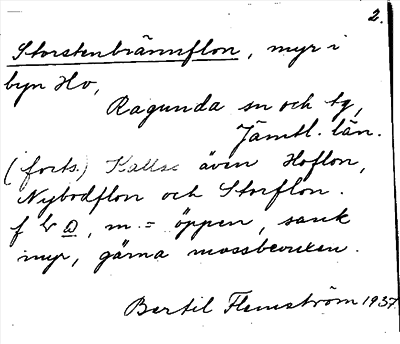 2.
Storstenbrännflon, myr i
byn Ho,
Ragunda sn och tg,
Jämtl. län.
(forts.) Kallas även Hoflon,
Nybodflon och Storflon.
f, m. = öppen, sank
myr, gärna mossbevuxen.
Bertil Flemström 1937.